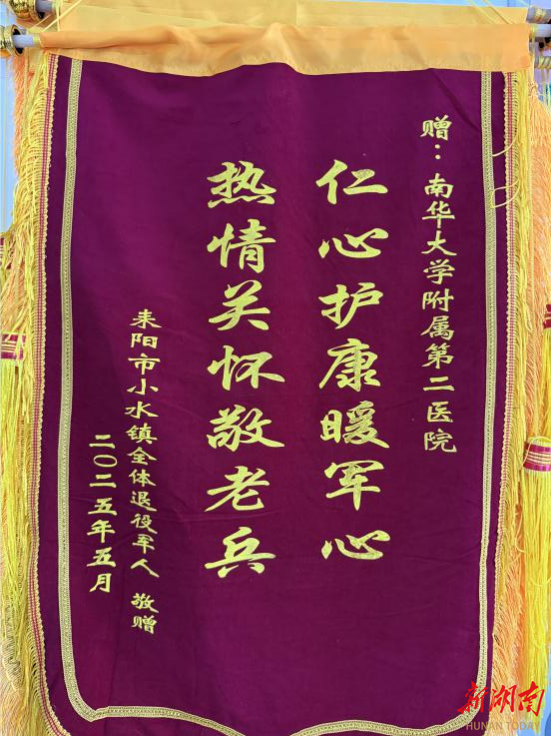 赠：南华大学附属第二医院
仁心护康暖军心
热情关怀敬老兵
耒阳市小水镇全体退役军人 敬赠
二〇二五年五月
新湖南
HUNAN TODAY